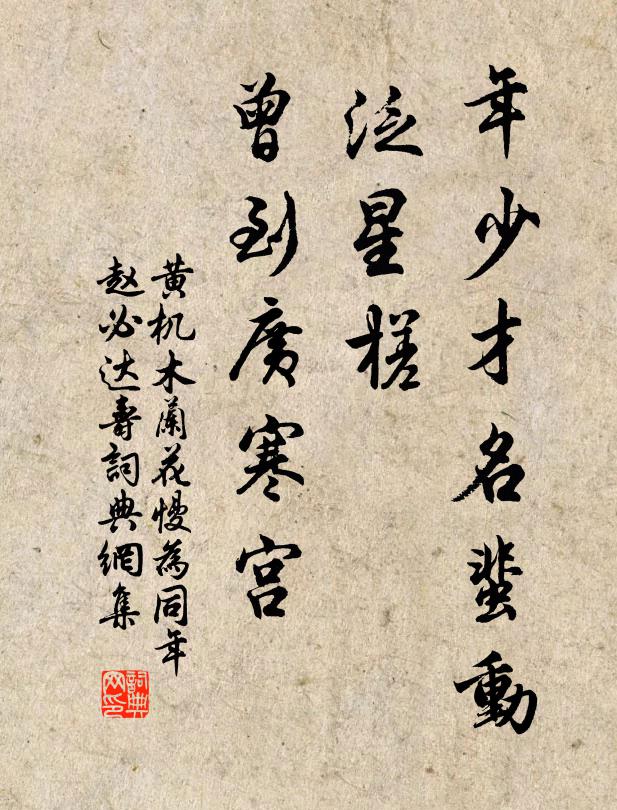 年少才名蜚動
泛星槎
曾到廣寒宮
黄机木蘭花慢為同年
赵必达壽詞典網集
詞典
网印